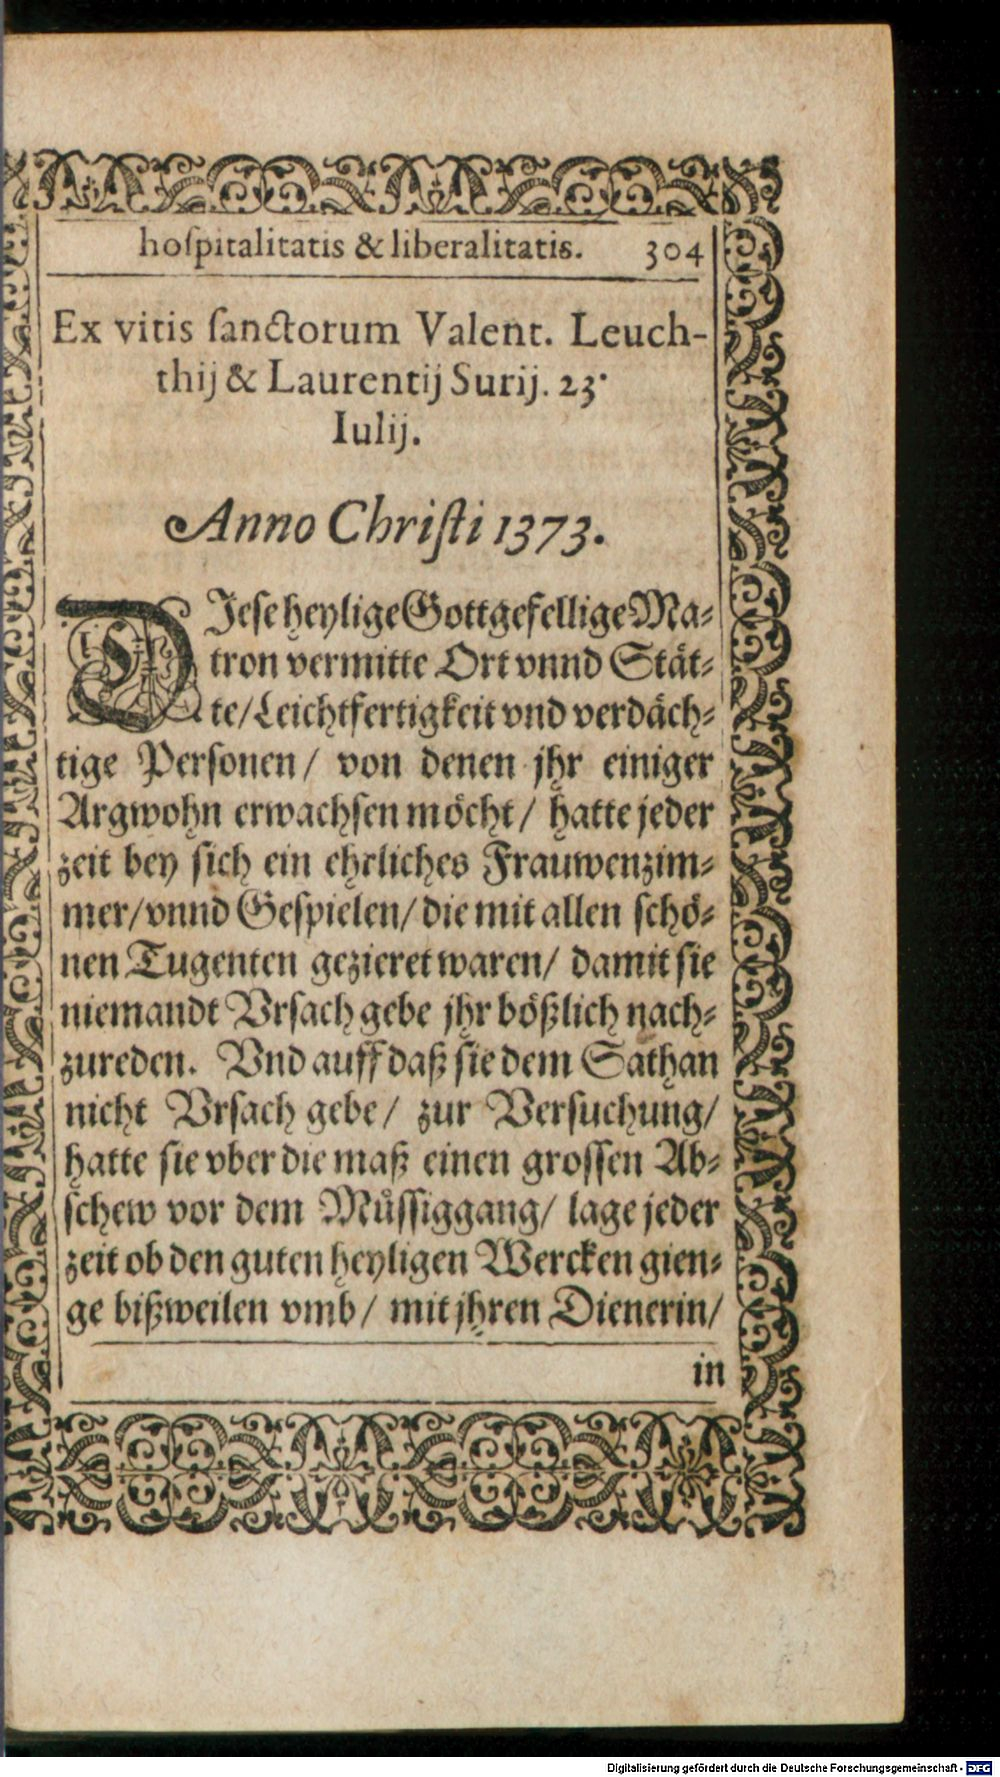 hoſpitalitatis & liberalitatis. 304
Ex vitis ſanctorum Valent. Leuch-
thij & Laurentij Surij. 23.
Iulij.
Anno Chriſti 1373.
DIeſe heylige Gottgefellige Ma-
tron vermitte Ort vnnd Stät-
te/ Leichtfertigkeit vnd verdäch-
tige Perſonen/ von denen jhr einiger
Argwohn erwachſen möcht/ hatte jeder
zeit bey ſich ein ehrliches Frauwenzim-
mer/ vnnd Geſpielen/ die mit allen ſchö-
nen Tugenten gezieret waren/ damit ſie
niemandt Vrſach gebe jhr bößlich nach-
zureden. Vnd auff daß ſie dem Sathan
nicht Vrſach gebe/ zur Verſuchung/
hatte ſie vber die maß einen groſſen Ab-
ſchew vor dem Müſſiggang/ lage jeder
zeit ob den guten heyligen Wercken gien-
ge bißweilen vmb/ mit jhren Dienerin/
in
Digitalisierung gefördert durch die Deutsche Forschungsgemeinschaft - DFG